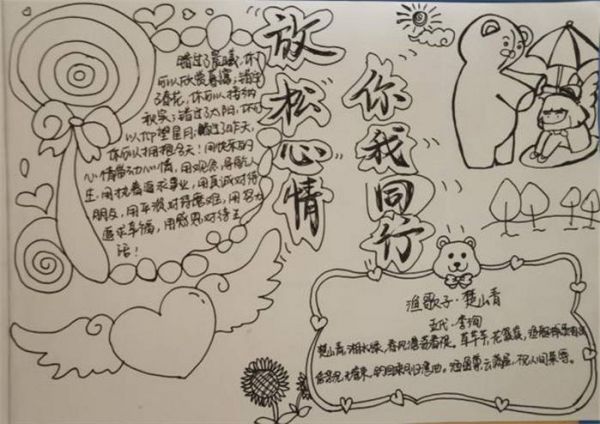 放松心情
你我同行
错过了晨曦,你
可以欣赏暮霭;错过
了春花,你可以接纳
秋实;错过了太阳,你可
以仰望星月;错过了昨天,
你可以拥抱今天!用快乐的
心情带动心情,用观念导航人
生,用执着追求事业,用真诚对待
朋友,用平淡对待磨难,用努力
追求幸福,用感恩对待生
活!
渔歌子·楚山青
五代·李珣
楚山青,湘水绿,春风澹荡看不足。草芊芊,花簇簇,渔艇棹歌相续
信浮沉,无管束,钓回乘月归湾曲。酒盈樽,云满屋,不见人间荣辱。